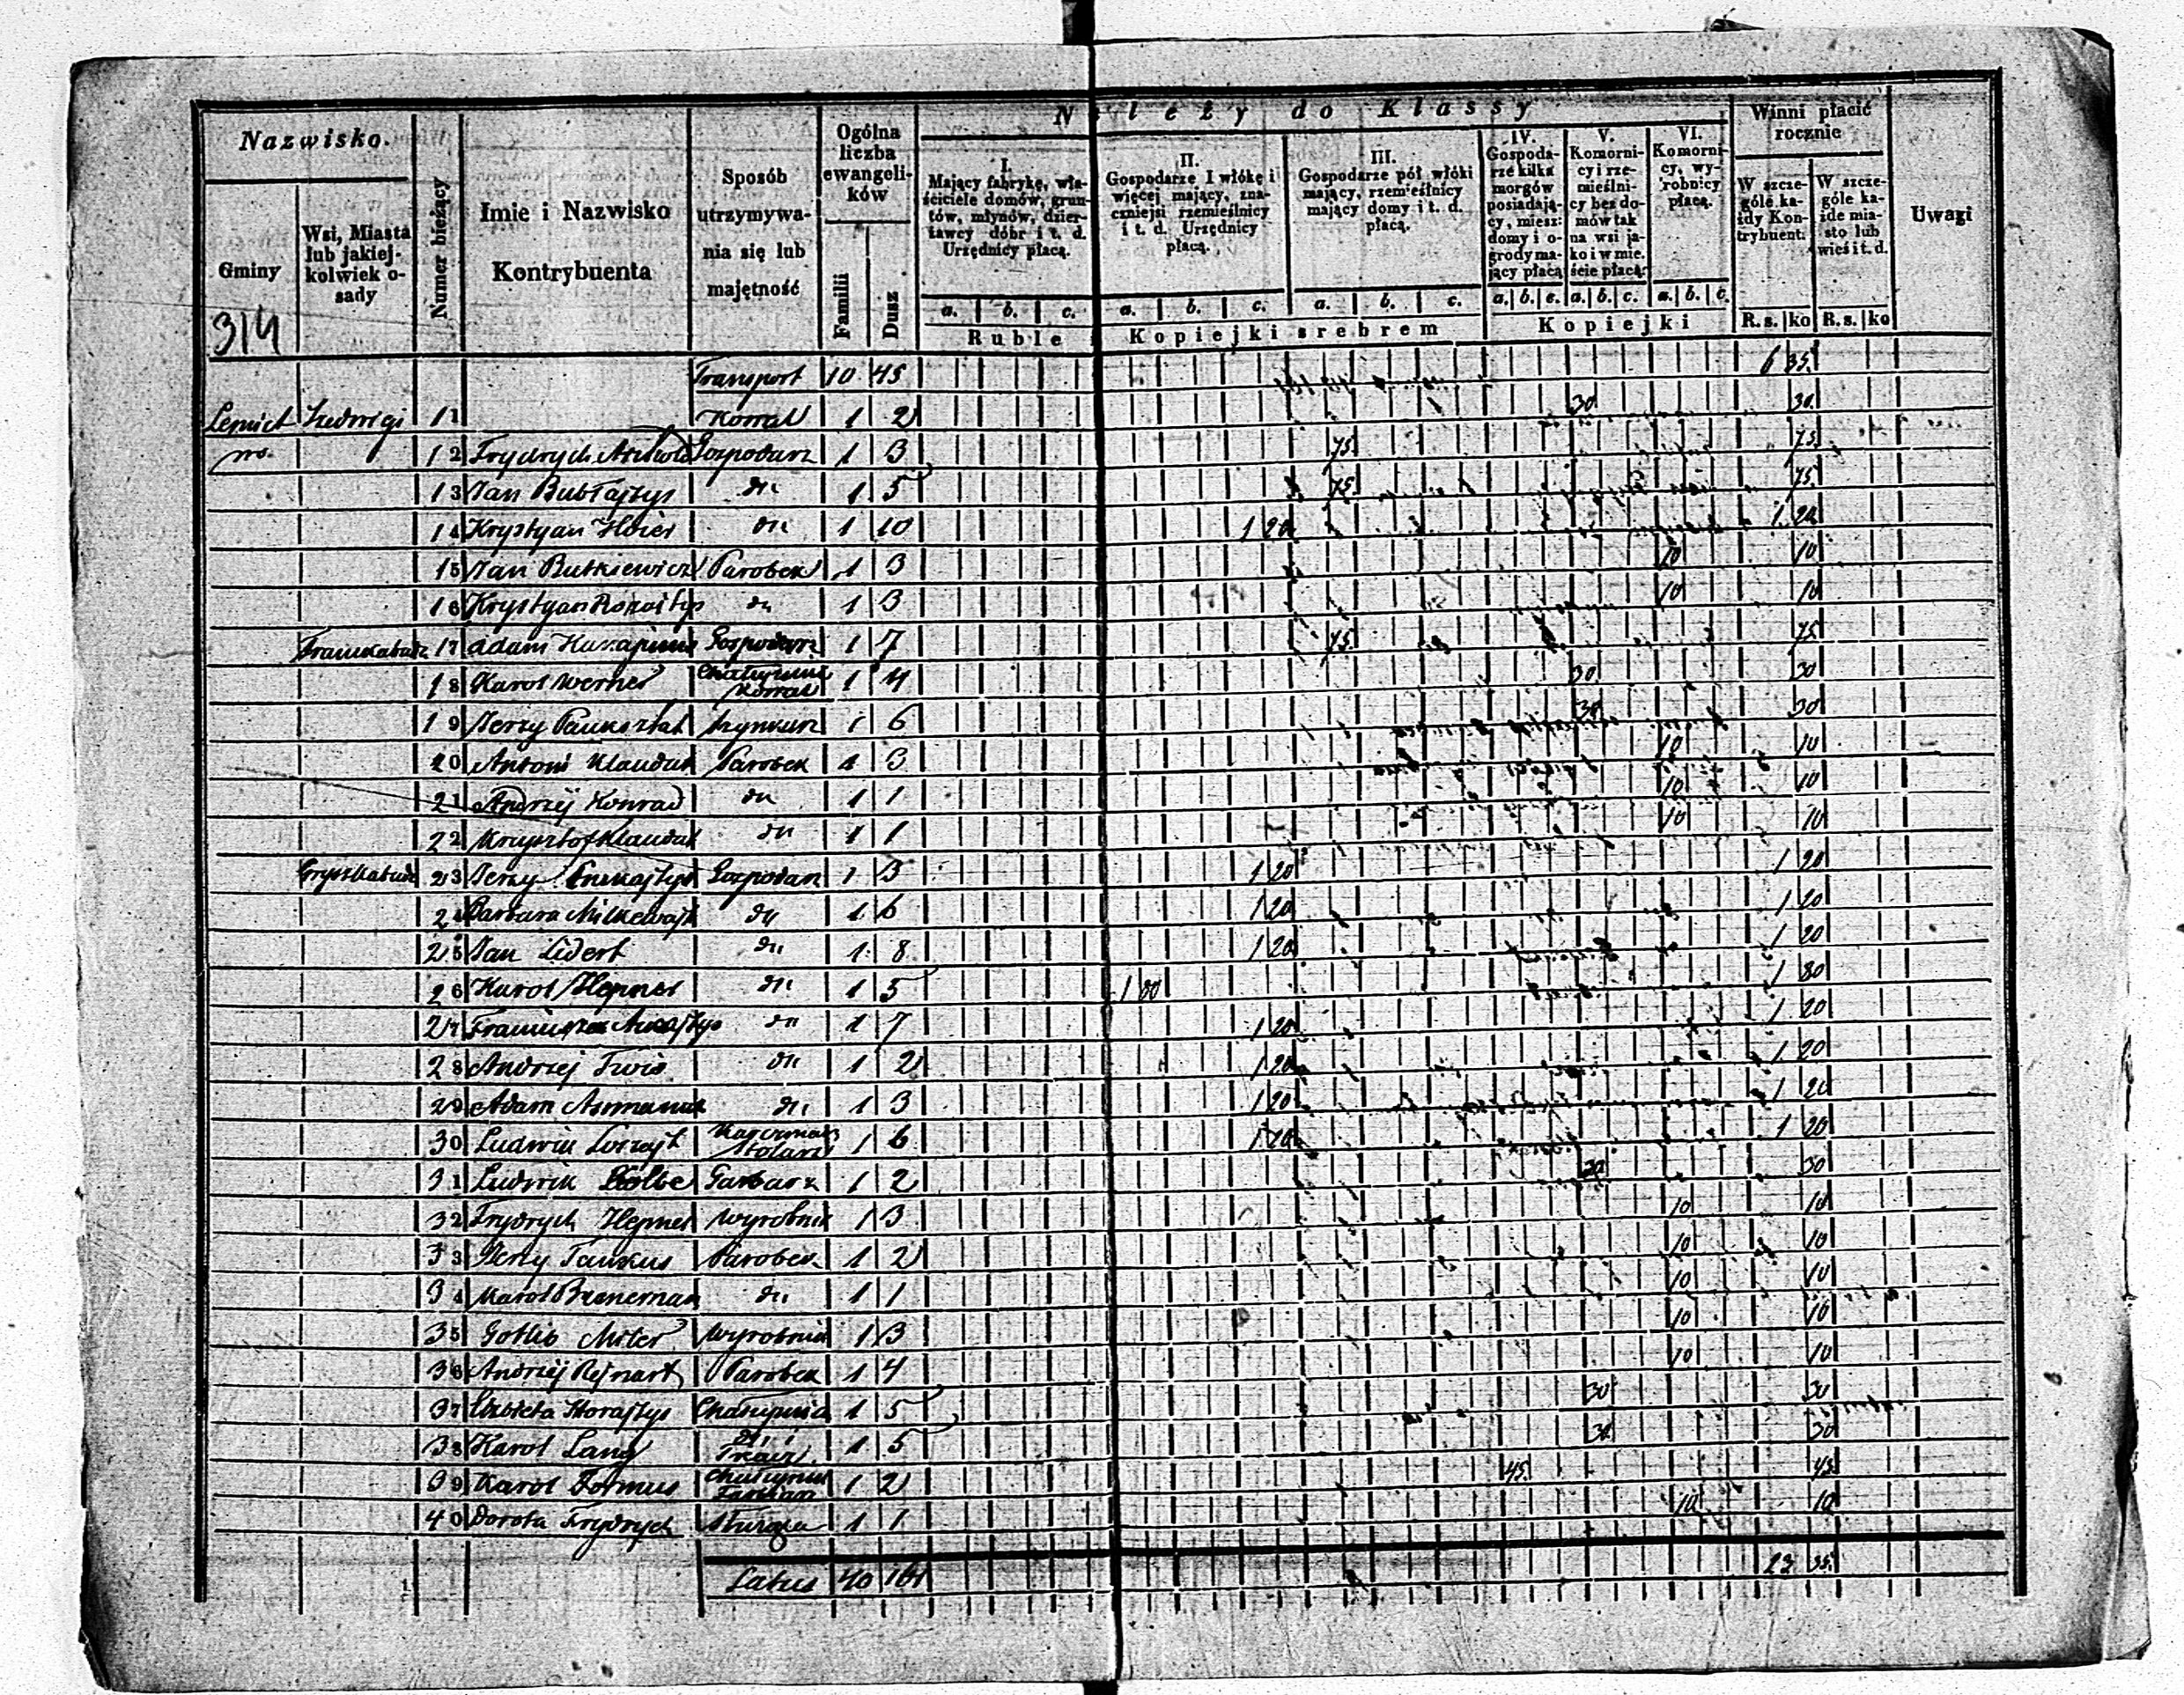 Nazwisko.
Gminy
Wsi, Miasta lub jakiej-kolwiek o-sady
Numer bieżący
Imie i Nazwisko Kontrybuenta
Sposób utrzymywa-nia się lub majętność
Ogólna liczba ewangeli-ków
Familii
Dusz
Należy do Klassy
I. Mający fabrykę, wła-ściciele domów, grun-tów, młynów, dzier-żawcy dóbr i t. d. Urzędnicy płacą.
II. Gospodarze 1 włókę i więcej mający, zna-czniejsi rzemieślnicy i t. d. Urzędnicy płacą.
III. Gospodarze pół włóki mający, rzemieślnicy mający domy i t. d. płacą.
IV. Gospoda-rze kilka morgów posiadają-cy, miesz: domy i o-grody ma-jący płacą
V. Komorni-cy i rze-mieślni-cy bez do-mów tak na wsi ja-ko i w mie.ście płacą:
VI. Komorni-cy, wy-robnicy płacą.
Winni płacić rocznie
W szcze-góle ka-żdy Kon-trybuent.
W szcze-góle ka-żde mia-sto lub wieś i t. d.
Uwagi
a. b. c. a. b. c. a. b. c. a. b. c. a. b. c. a. b. c.
Ruble Kopiejki srebrem Kopiejki R. s. ko R. s. ko
314
Transport 10 45 6 35
11 Kowal 1 2 30 30
12 Frydrych Gospodarz 1 3 75 75
13 Jan Bubłajtys du 1 5 75 75
14 Krystyan Hoier du 1 10 1 20 1 20
15 Jan Butkiewicz Parobek 1 3 10 10
16 Krystyan du 1 3 10 10
17 Adam Gospodarz 1 7 75 75
18 Karol Werner Chałupnik Kowal 1 4 30 30
19 Jerzy Pauksztat Szynkarz 1 6 30 30
20 Antoni Klaudat Parobek 1 3 10 10
21 Andrzej Konrad du 1 1 10 10
22 Krzysztof Klaudat du 1 1 10 10
23 Jerzy Gospodarz 1 3 1 20 1 20
24 Barbara du 1 6 1 20 1 20
25 Jan Lidert du 1 8 1 20 1 20
26 Karol Hepner du 1 5 1 80 1 80
27 du 1 7 1 20 1 20
28 Andrzej du 1 2 1 20 1 20
29 Adam du 1 3 1 20 1 20
30 Ludwik Stolarz 1 6 1 20 1 20
31 Ludwik Kolbe Garbarz 1 2 30 30
32 Frydrych Hepner Wyrobnik 1 3 10 10
33 Jerzy Parobek 1 2 10 10
34 Karol Breneman du 1 1 10 10
35 Gotlib Miler Wyrobnik 1 3 10 10
36 Andrzej Rejnart Parobek 1 4 10 10
37 Elżbieta Chałupnica 1 5 30 30
38 Karol Lang du i Tkacz 1 5 30 30
39 Karol Formus Chałupnik Farbiarz 1 2 45 45
40 Dorota Frydrych Sługa 1 1 10 10
Latus 40 161 23 35